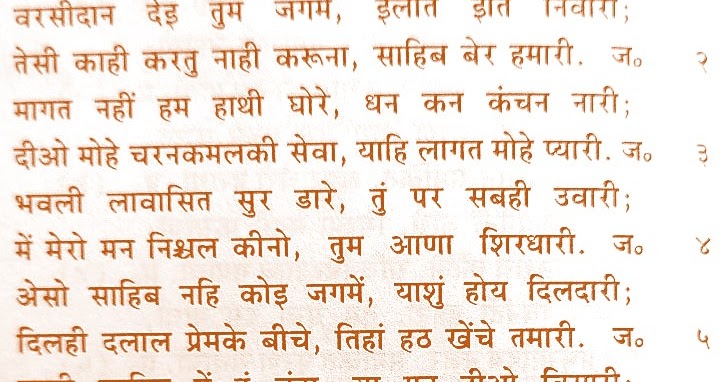 वरसीदान देइ तुम जगमें, इलति इति निवारी;
तेसी काही करतु नाही करूना, साहिब बेर हमारी. ज॰ २
मागत नहीं हम हाथी घोरे, धन कन कंचन नारी;
दीओ मोहे चरनकमलकी सेवा, याहि लागत मोहे प्यारी. ज॰ ३
भवली लावासित सुर डारे, तुं पर सबही उवारी;
में मेरो मन निश्चल कीनो, तुम आणा शिरधारी. ज॰ ४
अेसो साहिब नहि कोइ जगमें, याशुं होय दिलदारी;
दिलही दलाल प्रेमके बीचे, तिहां हठ खेंचे तमारी. ज॰ ५